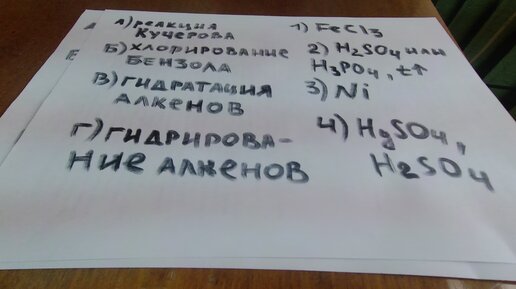 А) РЕАКЦИЯ
КУЧЕРОВА
Б) ХЛОРИРОВАНИЕ
БЕНЗОЛА
В) ГИДРАТАЦИЯ
АЛКЕНОВ
Г) ГИДРИРОВА-
НИЕ АЛКЕНОВ
1) FeCl3
2) H2SO4 или
H3PO4, t↑
3) Ni
4) HgSO4,
H2SO4